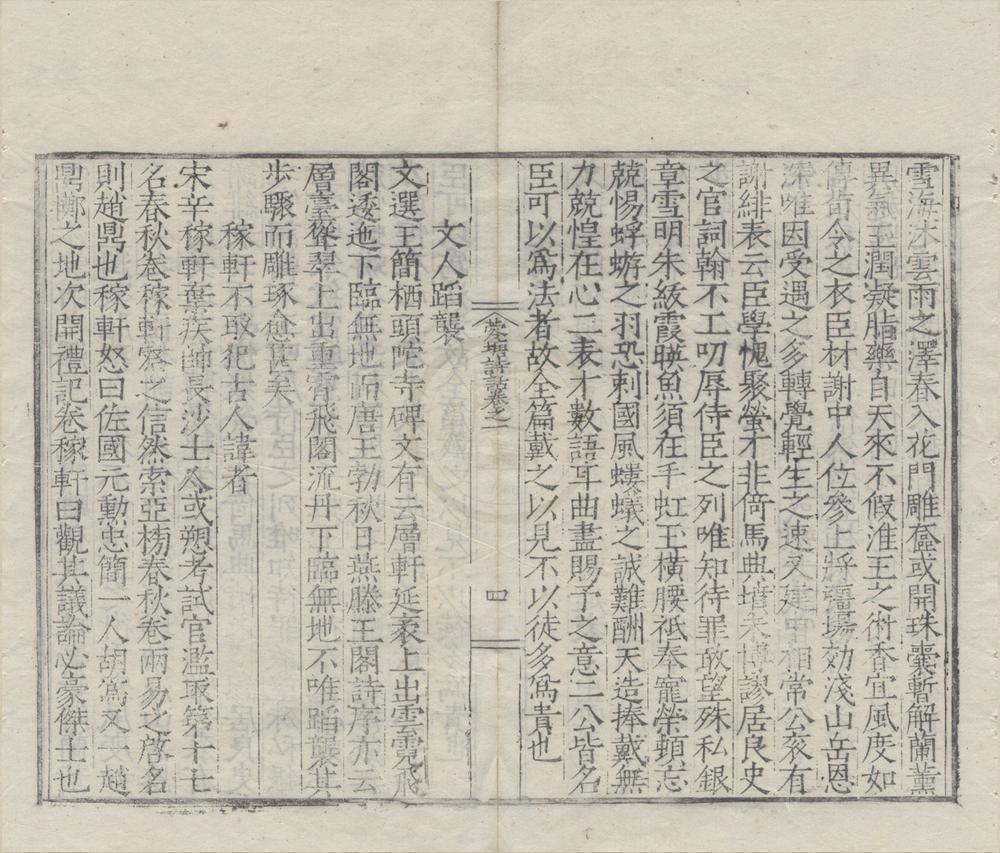 雪海沐雲雨之澤春入花門雕奩或開珠囊暫解蘭薰
異氣玉潤凝脂藥自天來不假淮王之術香宜風度如
傳荀令之衣臣材謝中人位參上將疆場効淺山岳恩
深唯因受遇之多轉覺輕生之速又建中相常公衮有
謝緋表云臣學愧聚螢才非倚馬典墳未博謬居良史
之官詞翰不工叨辱侍臣之列唯知待罪敢望殊私銀
章雪明朱紱霞暎魚須在手虹玉橫腰祗奉寵榮頓忘
兢惕蜉蝣之羽恐刺國風螻蟻之誠難酬天造捧戴無
力兢惶在心二表才數語耳曲盡賜予之意二公皆名
臣可以爲法者故全篇戴之以見不以徒多爲貴也
四
文人蹈襲
文選王簡栖頭陀寺碑文有云層軒延袤上出雲霓飛
閣逶迤下臨無地而唐王勃秋日燕滕王閣詩序亦云
層臺聳翠上出重霄飛閣流丹下臨無地不唯蹈襲其
步驟而雕琢愈甚矣
稼軒不取犯古人諱者
宋辛稼軒棄疾帥長沙士人或愬考試官濫取第十七
名春秋卷稼軒察之信然索亞榜春秋卷兩易之啓名
則趙鼎也稼軒怒曰佐國元勳忠簡一人胡爲又一趙
鼎擲之地次開禮記卷稼軒曰觀其議論必豪傑士也